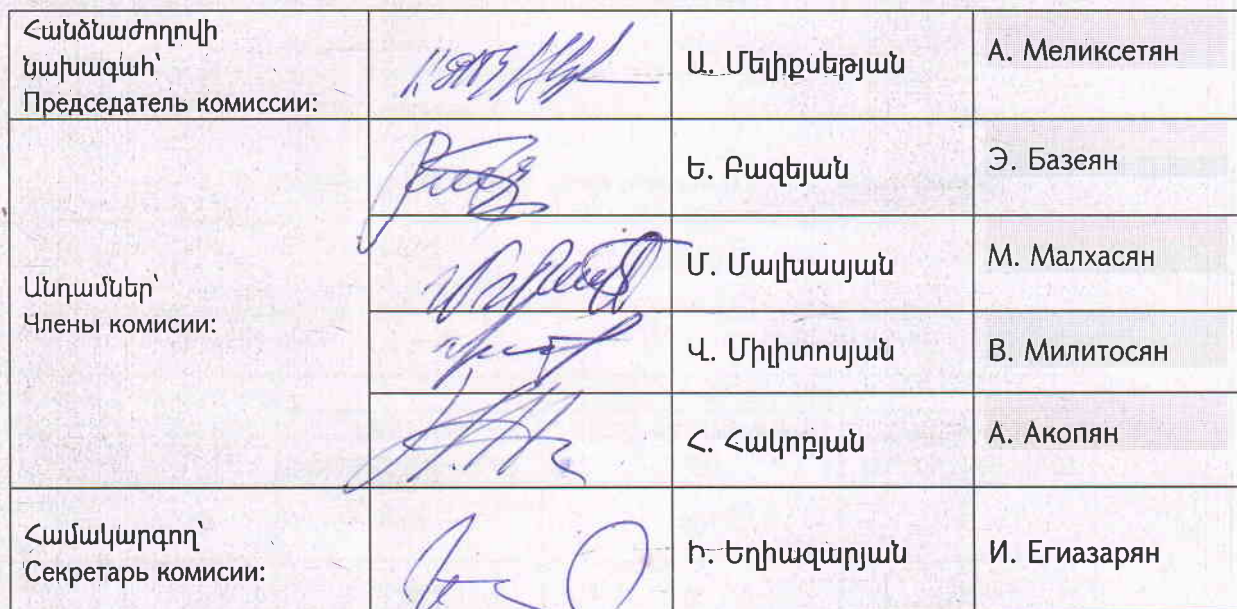 Հանձնաժողովի
նախագահ՝
Председатель комиссии:
Ա. Մելիքսեթյան
А. Меликсетян
Ե. Բազեյան
Э. Базеян
Անդամներ՝
Члены комисии:
Մ. Մալխասյան
М. Малхасян
Վ. Միլիտոսյան
В. Милитосян
Հ. Հակոբյան
А. Акопян
Համակարգող՝
Секретарь комисии:
Ի. Եղիազարյան
И. Егиазарян